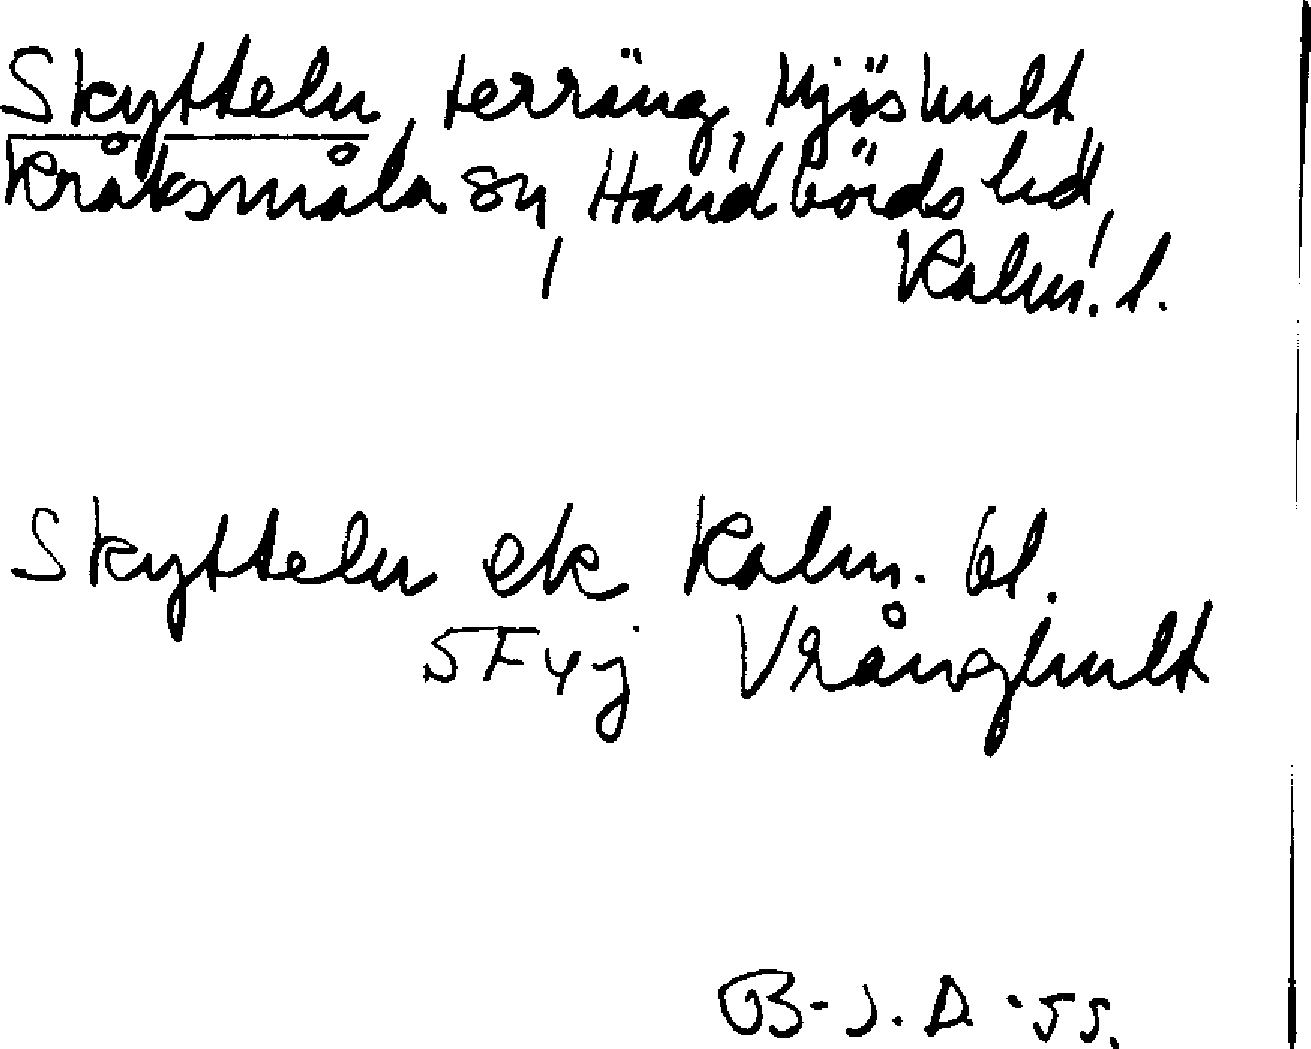 Skytteln, terräng, Mjöshult
Kråksmåla sn, Handbörds hd,
Kalm. l.
Skytteln ek Kalm. bl.
5F4j Vrånghult
B-J. D. -55.